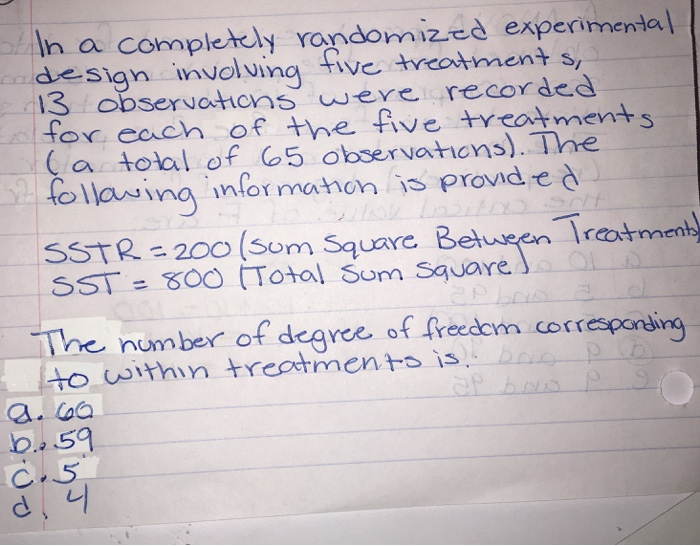 In a completely randomized experimental
design involving five treatments,
13 observations were recorded
for each of the five treatments
(a total of 65 observations). The
following information is provided
SSTR = 200 (Sum Square Between Treatments)
SST = 800 (Total Sum Square)
The number of degree of freedom corresponding
to within treatments is.
a. 60
b. 59
c. 5
d. 4